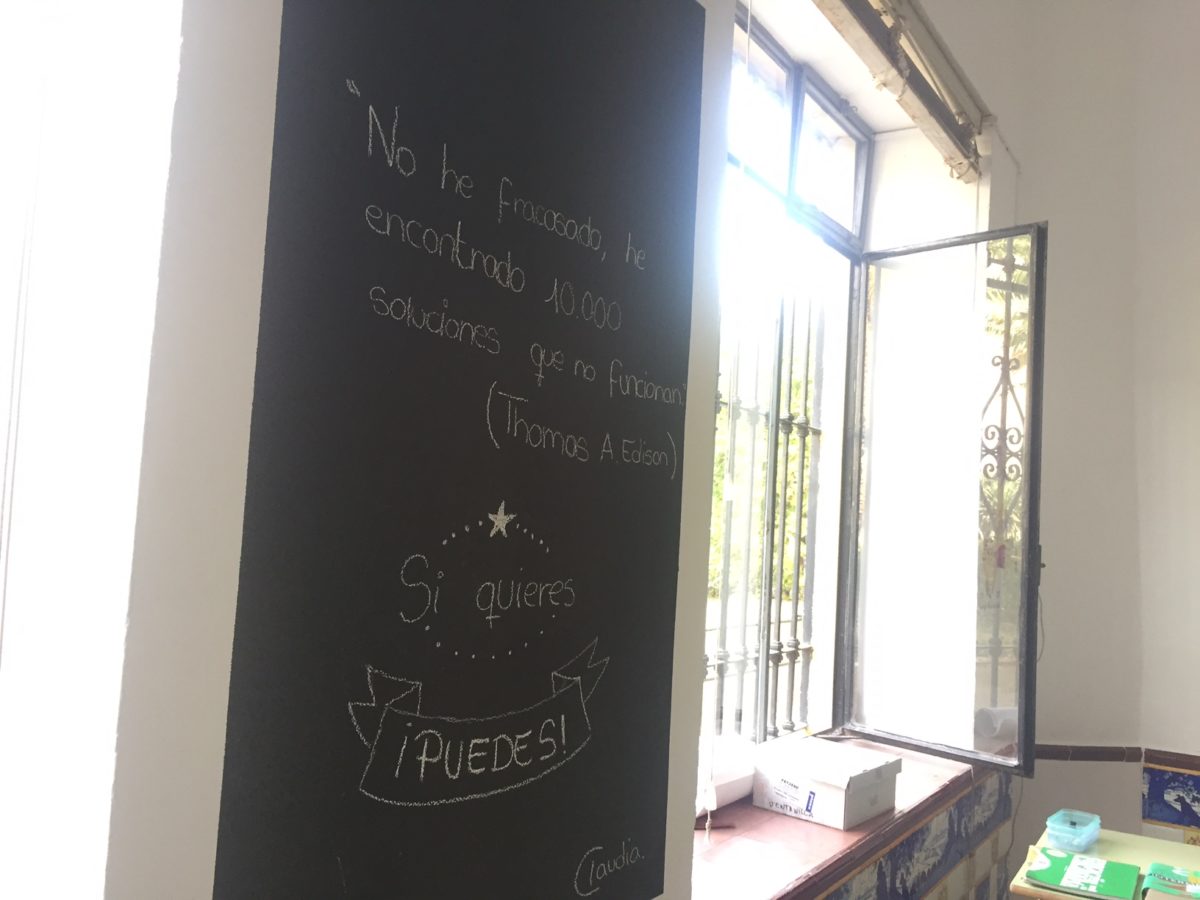 "No he fracasado, he
encontrado 10.000
soluciones que no funcionan."
(Thomas A. Edison)
Si quieres
¡PUEDES!
Claudia.